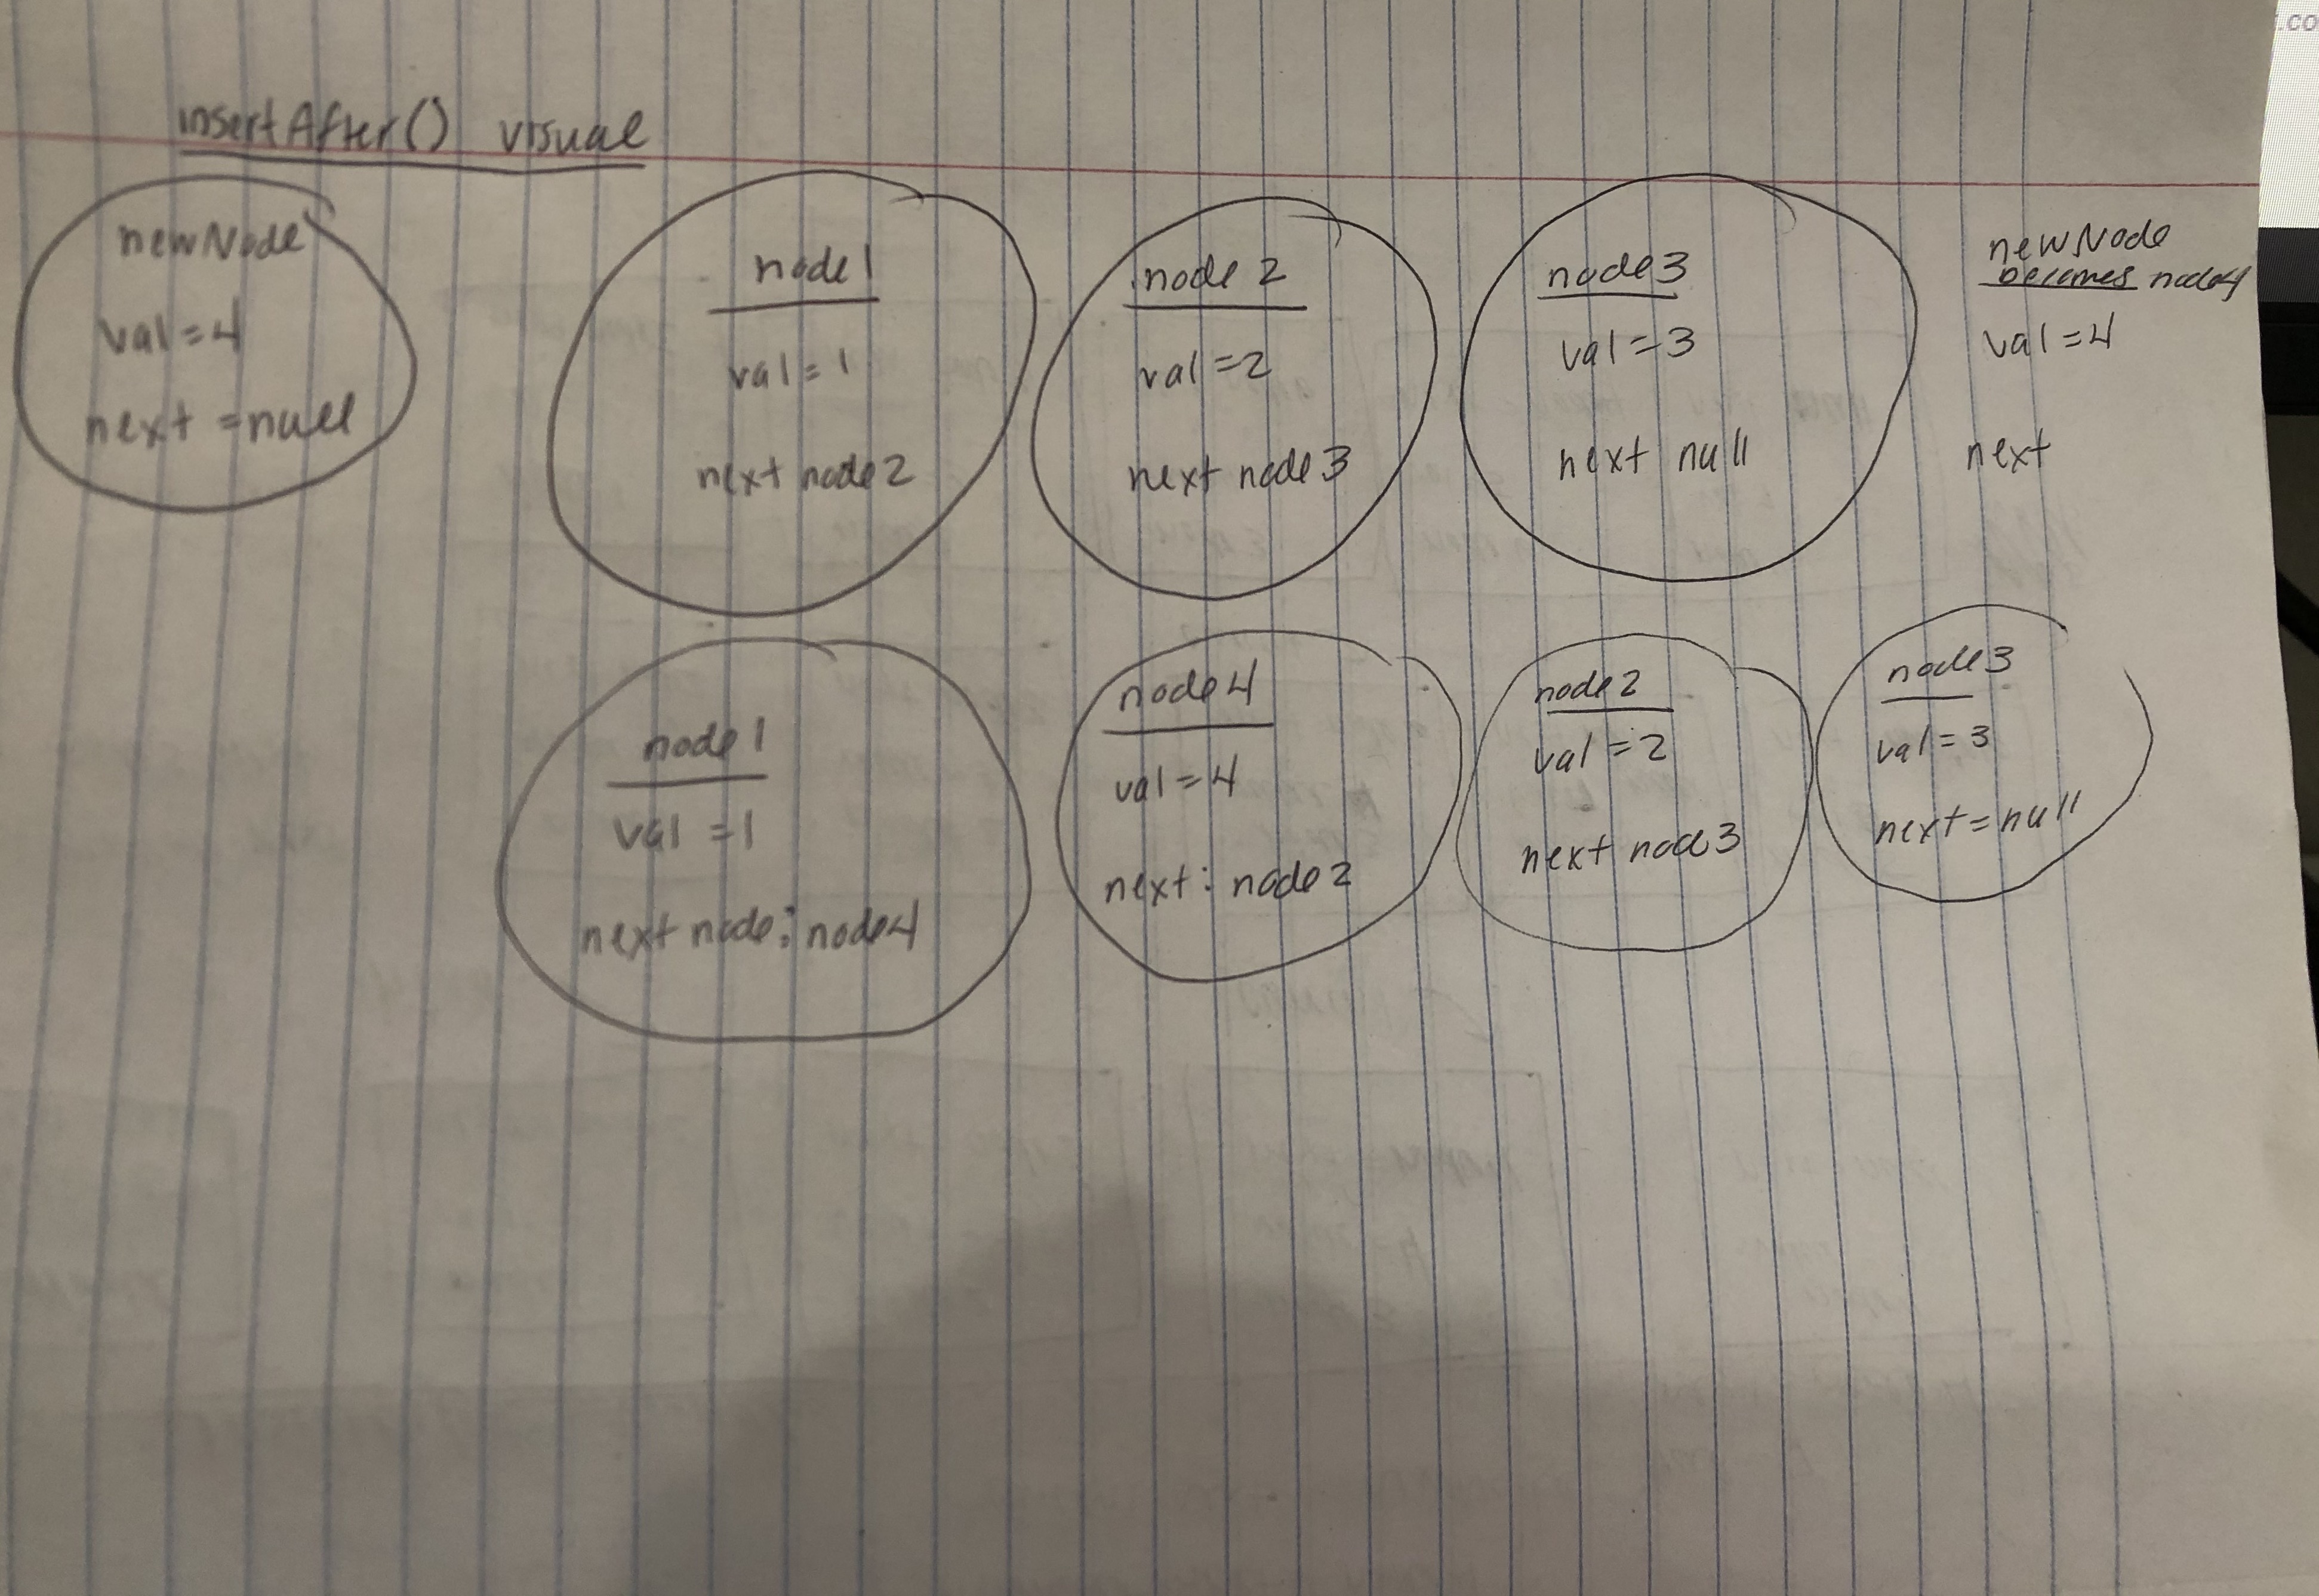 insertAfter() visual
newNode
val = 4
next = null
node 1
val = 1
next node 2
node 2
val = 2
next node 3
node 3
val = 3
next null
newNode
becomes node4
val = 4
next
node 1
val = 1
next node: node4
node 4
val = 4
next: node 2
node 2
val = 2
next node 3
node 3
val = 3
next = null
.co